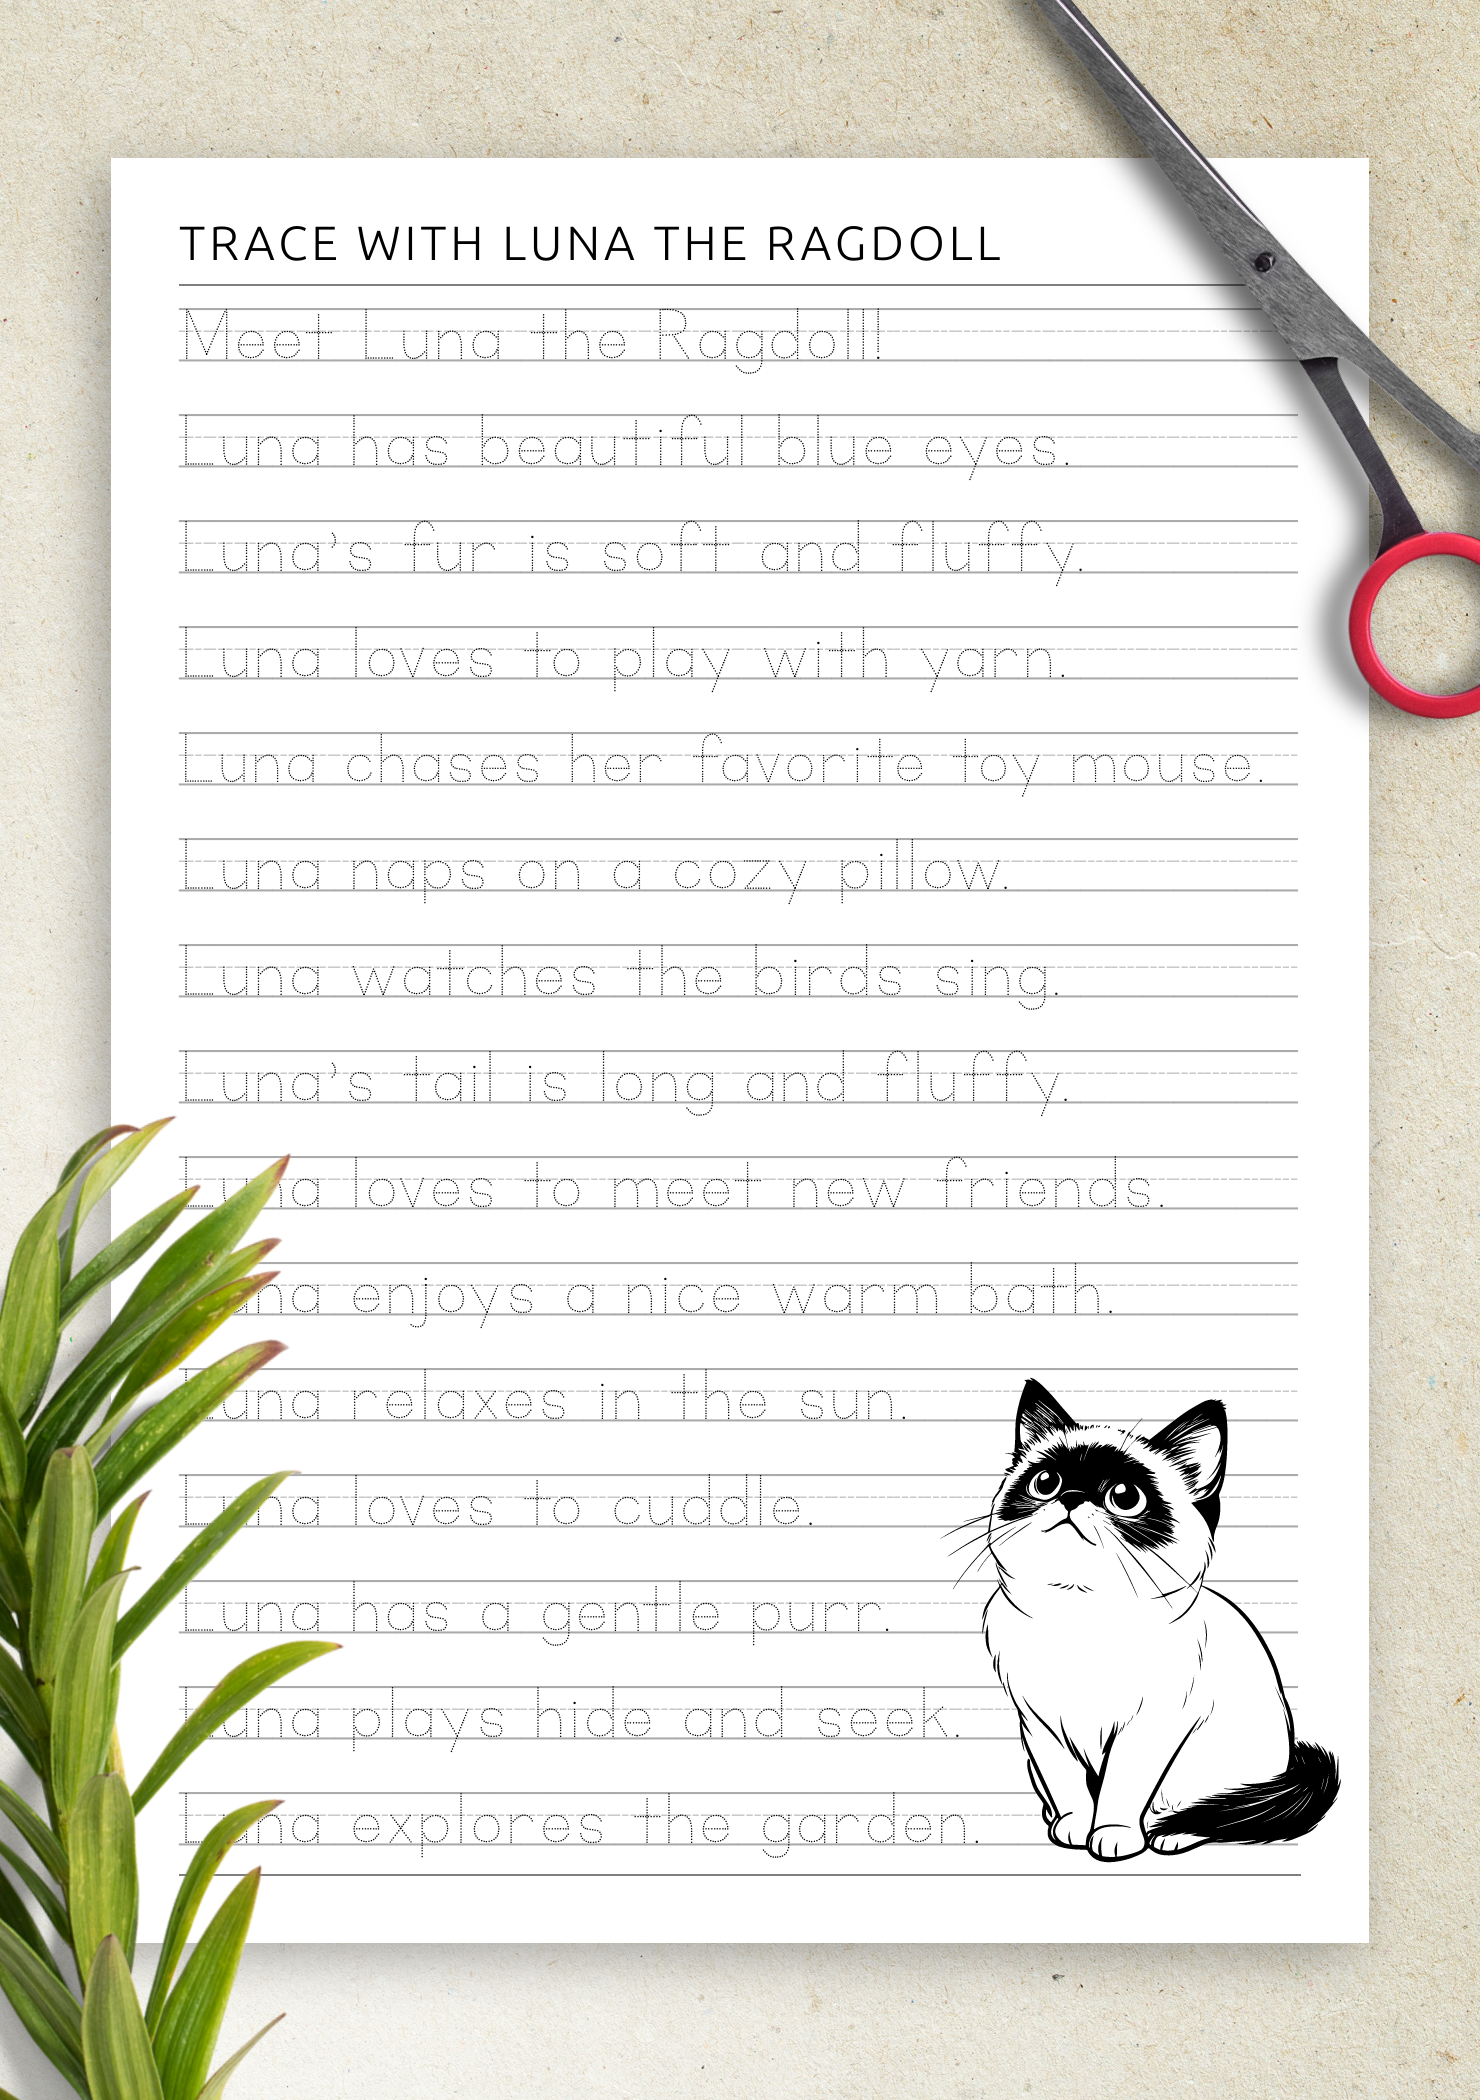 TRACE WITH LUNA THE RAGDOLL
Meet Luna the Ragdoll!
Luna has beautiful blue eyes.
Luna's fur is soft and fluffy.
Luna loves to play with yarn.
Luna chases her favorite toy mouse.
Luna naps on a cozy pillow.
Luna watches the birds sing.
Luna's tail is long and fluffy.
Luna loves to meet new friends.
Luna enjoys a nice warm bath.
Luna relaxes in the sun.
Luna loves to cuddle.
Luna has a gentle purr.
Luna plays hide and seek.
Luna explores the garden.